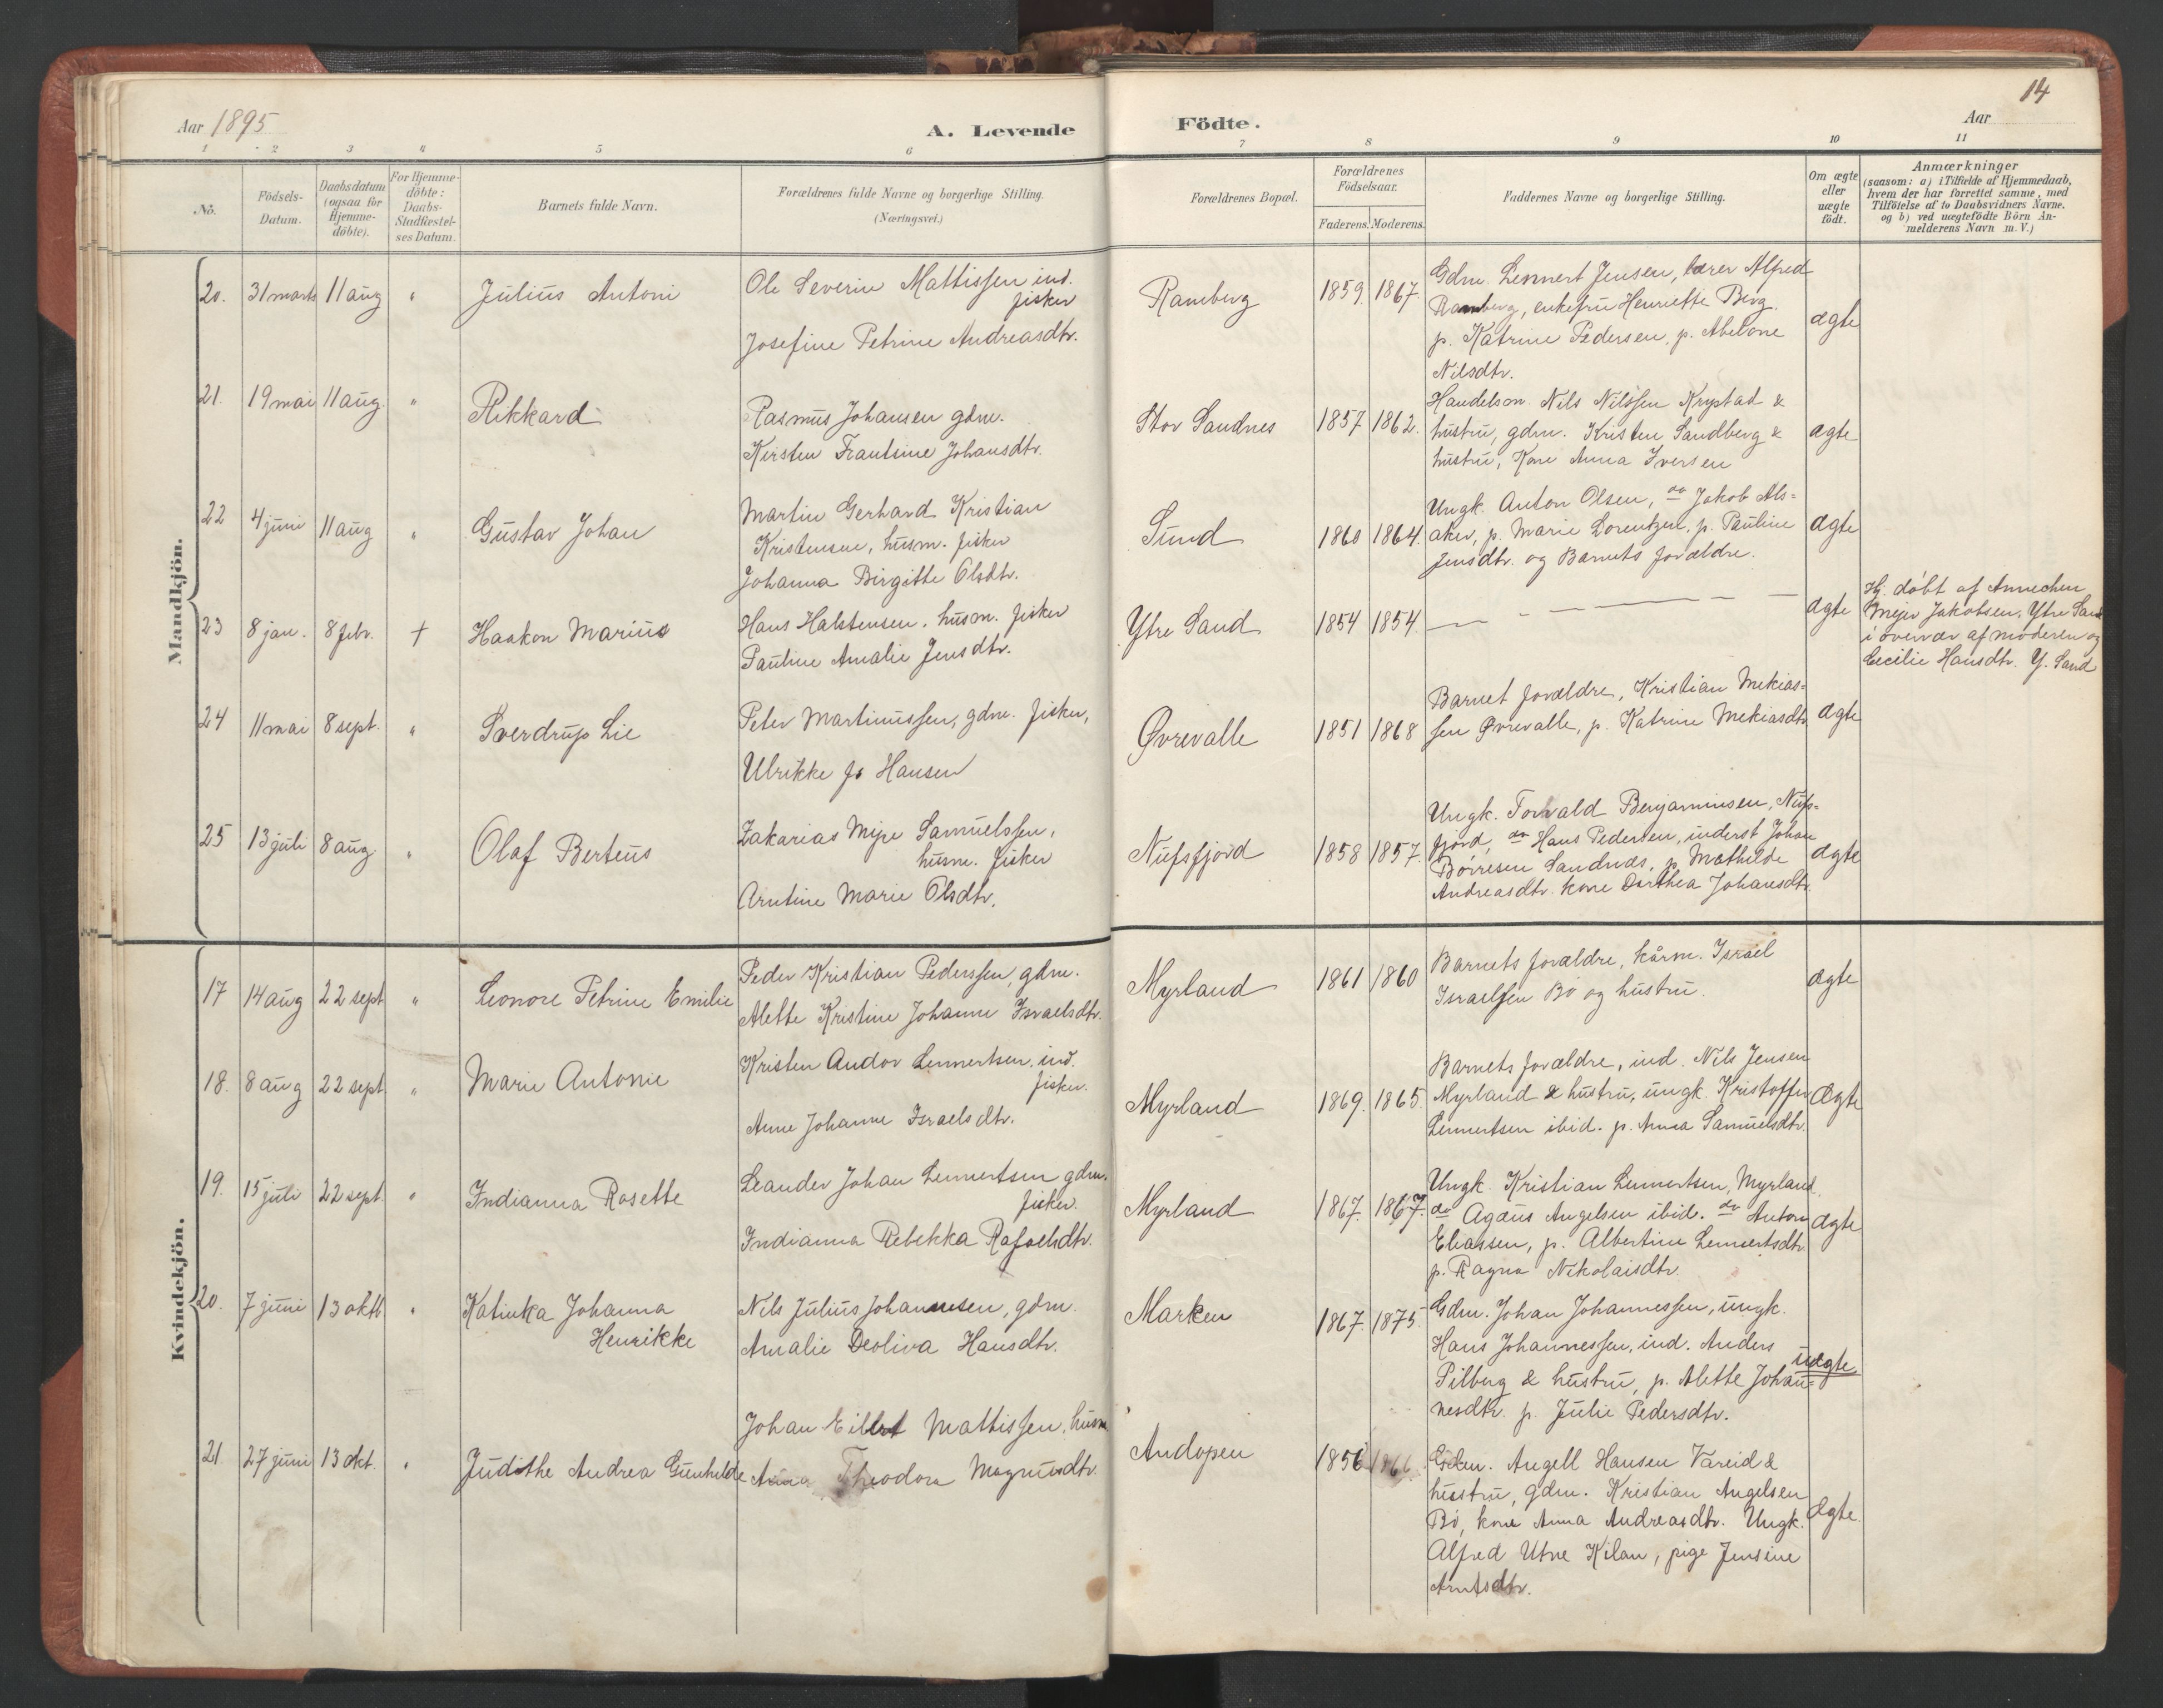 14
Aar 1895
A. Levende
Födte.
Aar
1 2 3 4 5 6 7 8 9 10 11
No.
Födsels-
Datum.
Daabsdatum
(ogsaa for
Hjemme-
döbte).
For Hjemme-
döbte:
Daabs-
Stadfæstel-
ses Datum.
Barnets fulde Navn.
Forældrenes fulde Navne og borgerlige Stilling.
(Næringsvei.)
Forældrenes Bopæl.
Forældrenes
Födselsaar.
Faderens. Moderens.
Faddernes Navne og borgerlige Stilling.
Om ægte
eller
uægte
födt.
Anmærkninger
(saasom: a) i Tilfælde af Hjemmedaab,
hvem der har forrettet samme, med
Tilföielse af to Daabsvidners Navne.
og b) ved uægtefödte Börn An-
melderens Navn m. V.)
Mandkjön.
20. 31 marts 11 aug " Julius Antoni
Ole Severin Mattissen ind.
fisker
Josefine Petrine Andreasdtr.
Ramberg 1859. 1867.
Gdm. Lennert Jensen, lærer Alfred
Ramberg, enkefru Henriette Berg
p. Katrine Pedersen, p. Abelone
Nilsdtr.
ægte
21. 19 mai 11 aug. " Rikkard
Rasmus Johansen gdm.
Kirsten Frantsine Johansdtr.
Stor Sandnes 1857 1862.
Handelsm. Nils Nilssen Krystad &
hustru, gdm. Kristen Sandberg &
hustru, Kone Anna Iversen
ægte
22 4 juni 11 aug " Gustav Johan
Martin Gerhard Kristian
Kristensen, husm. fisker
Johanna Birgitte Olsdtr.
Sund 1860 1864.
Ungk. Anton Olsen, do Jakob Als-
aker, p. Marie Lorentzen, p. Pauline
Jensdtr. og Barnets forældre.
ægte
23 8 jan. 8 febr. † Haakon Marius
Hans Halstensen, husm. fisker
Pauline Amalie Jensdtr.
Ytre Sand 1854 1854.
— — — — —
ægte
Hj. döbt af Annechen
Mejer Jakobsen, Ytre Sand
i overvær af moderen og
Cecilie Hansdtr. Y. Sand
24 11 mai 8 sept. " Sverdrup Lie
Peter Martinussen, gdm. fisker,
Ulrikke f. Hansen
Øvrevalle 1851 1868
Barnet forældre, Kristian Mekias-
sen Øvrevalle, p. Katrine Mekiasdtr
ægte
25 13 juli 8 aug. " Olaf Berteus
Zakarias Mejer Samuelssen,
husm. fisker
Arntine Marie Olsdtr.
Nufsfjord 1858 1857.
Ungk. Torvald Benjaminsen, Nufs-
fjord, do Hans Pedersen, inderst Johan
Börresen Sandnæs, p. Mathilde
Andreasdtr. kone Dorthea Johansdtr.
ægte
Kvindekjön.
17 14 aug 22 sept " Leonore Petrine Emilie
Peder Kristian Pederssen, gdm.
Alette Kristine Johanne Israelsdtr.
Myrland 1861 1860
Barnets forældre, kårm. Israel
Israelsen Bö og hustru.
ægte
18. 8 aug 22 sept " Marie Antonie
Kristen Andor Lennertsen, ind.
fisker.
Anne Johanne Israelsdtr.
Myrland 1869. 1865.
Barnets forældre, ind. Nils Jensen
Myrland & hustru, ungk. Kristoffer
Lennertsen ibid. p. Anna Samuelsdtr.
Ægte
19. 15 juli 22 sept. " Indianna Rosette
Leander Johan Lennertsen gdm.
fisker.
Indianna Rebekka Rafaelsdtr.
Myrland 1867. 1867.
Ungk. Kristian Lennertsen, Myrland.
do Agæus Angelsen ibid. do Anton
Eliassen, p. Albertine Lennertsdtr.
p. Ragna Nikolaisdtr.
ægte
20. 7 juni 13 oktb " Katinka Johanna
Henrikke
Nils Julius Johannesen, gdm.
Amalie Deoliva Hansdtr.
Marken 1867. 1875.
Gdm. Johan Johannessen, ungk.
Hans Johannessen, ind. Anders
Pilberg & hustru, p. Alette Johan-
nesdtr. p. Julie Pedersdtr.
uægte
21. 27 juni 13 okt. " Judithe Andrea Gunhilde
Johan Eilert Mattissen, husm
Anna Theodora Magnusdtr.
Andopen 1856 1866.
Gdm. Angell Hansen Vareid &
hustru, gdm. Kristian Angelsen
Bö, kone Anna Andreasdtr. Ungk.
Alfred Utne Kilan, pige Jensine
Arntsdtr.
Ægte.